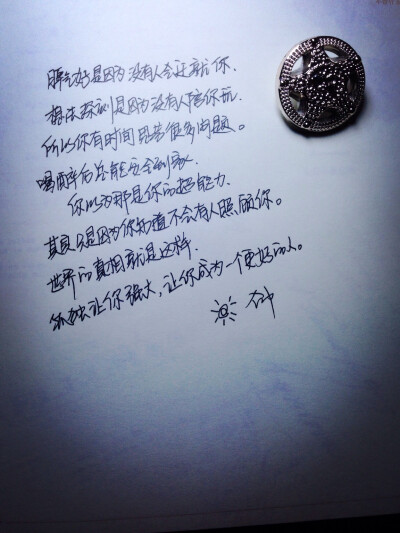 脾气好是因为没有人会迁就你.
想法深刻是因为没有人陪你玩.
所以你有时间思考很多问题。
喝醉后总能安全到家.
你以为那是你的超能力.
其实只是因为你知道不会有人照顾你。
世界的真相就是这样.
孤独让你强大,让你成为一个更好的人。